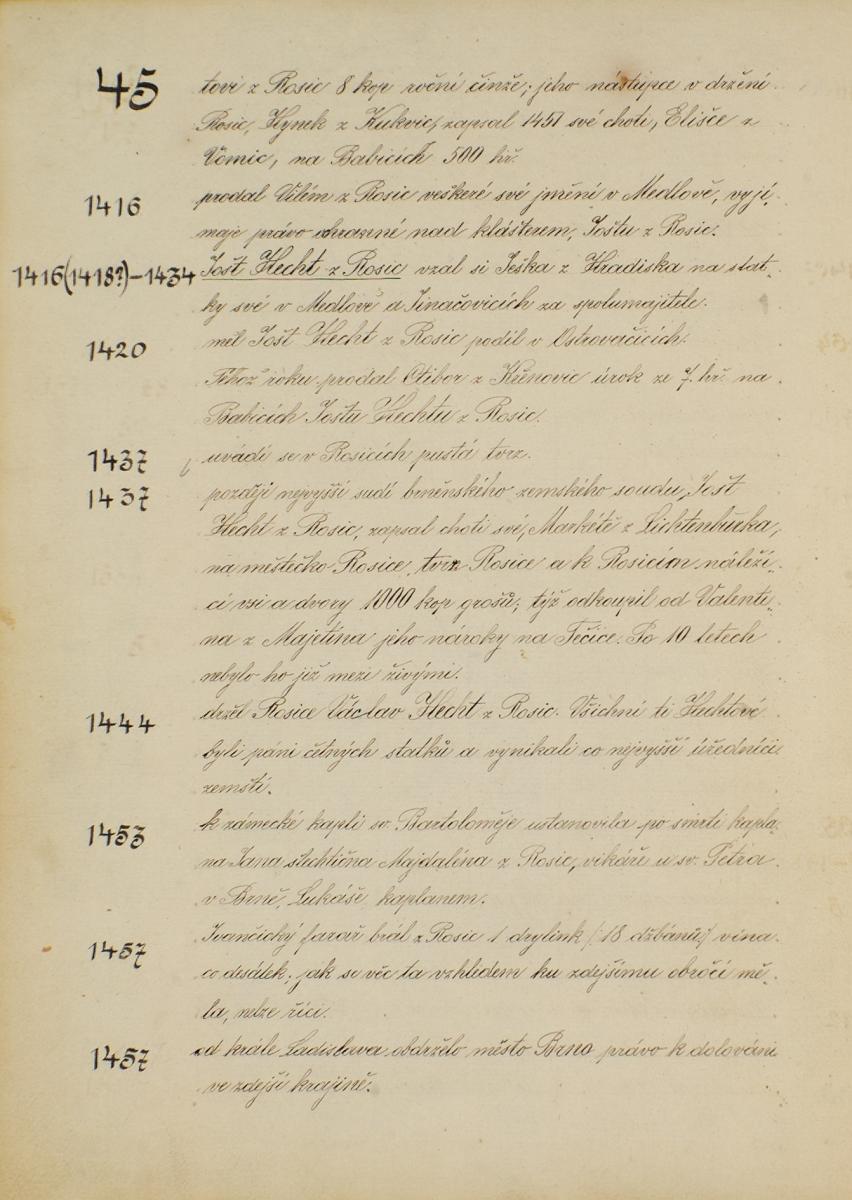 45 tovi z Rosic 8 kop roční činže; jeho nástupce v držení
Rosic, Hynek z Kukvic, zapsal 1451 své choti, Elišce z
Vomic, na Babicích 500 hř.
1416 prodal Vilém z Rosic veškeré své jmění v Medlově, vyjí-
maje právo ochranné nad klášterem, Joštu z Rosic.
1416(1418?)-1434 Jošt Hecht z Rosic vzal si Ješka z Hradiska na stat-
ky své v Medlově a Jinačovicích za spolumajitele.
1420 měl Jošt Hecht z Rosic podíl v Ostrovačicích.
Téhož roku prodal Ctibor z Křenovic úrok ze 7 hř. na
Babicích Joštu Hechtu z Rosic.
1437 uvádí se v Rosicích pustá tvrz.
1437 později nejvyšší sudí brněnského zemského soudu, Jošt
Hecht z Rosic, zapsal choti své, Markétě z Lichtenburka,
na městečko Rosice, tvrz Rosice a k Rosicím náleží-
cí vsi a dvory 1000 kop grošů; týž odkoupil od Valenti-
na z Majetína jeho nároky na Tečice. Po 10 letech
nebylo ho již mezi živými.
1444 držel Rosice Václav Hecht z Rosic. Všichni ti Hechtové
byli páni četných statků a vynikali co nejvyšší úředníci
zemští.
1453 k zámecké kapli sv. Bartoloměje ustanovila po smrti kapla-
na Jana šlechtična Majdaléna z Rosic, vikáře u sv. Petra
v Brně, Lukáše kaplanem.
1457 Ivančický farář bral z Rosic 1 drylink /:18 džbánů:/ vína
co desátek; jak se věc ta vzhledem ku zdejšímu obročí mě-
la, nelze říci.
1457 od krále Ladislava obdrželo město Brno právo k dolování
ve zdejší krajině.